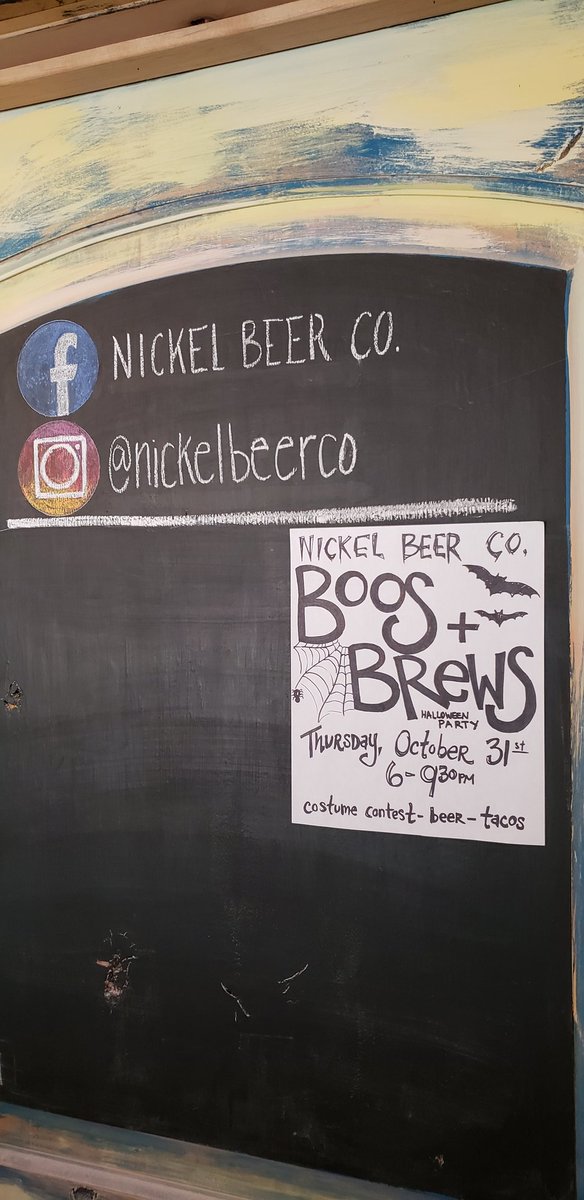 f NICKEL BEER CO.
@nickelbeerco
NICKEL BEER CO.
BOOS +
BREWS
HALLOWEEN
PARTY
Thursday, October 31st
6-930PM
costume contest - beer - tacos